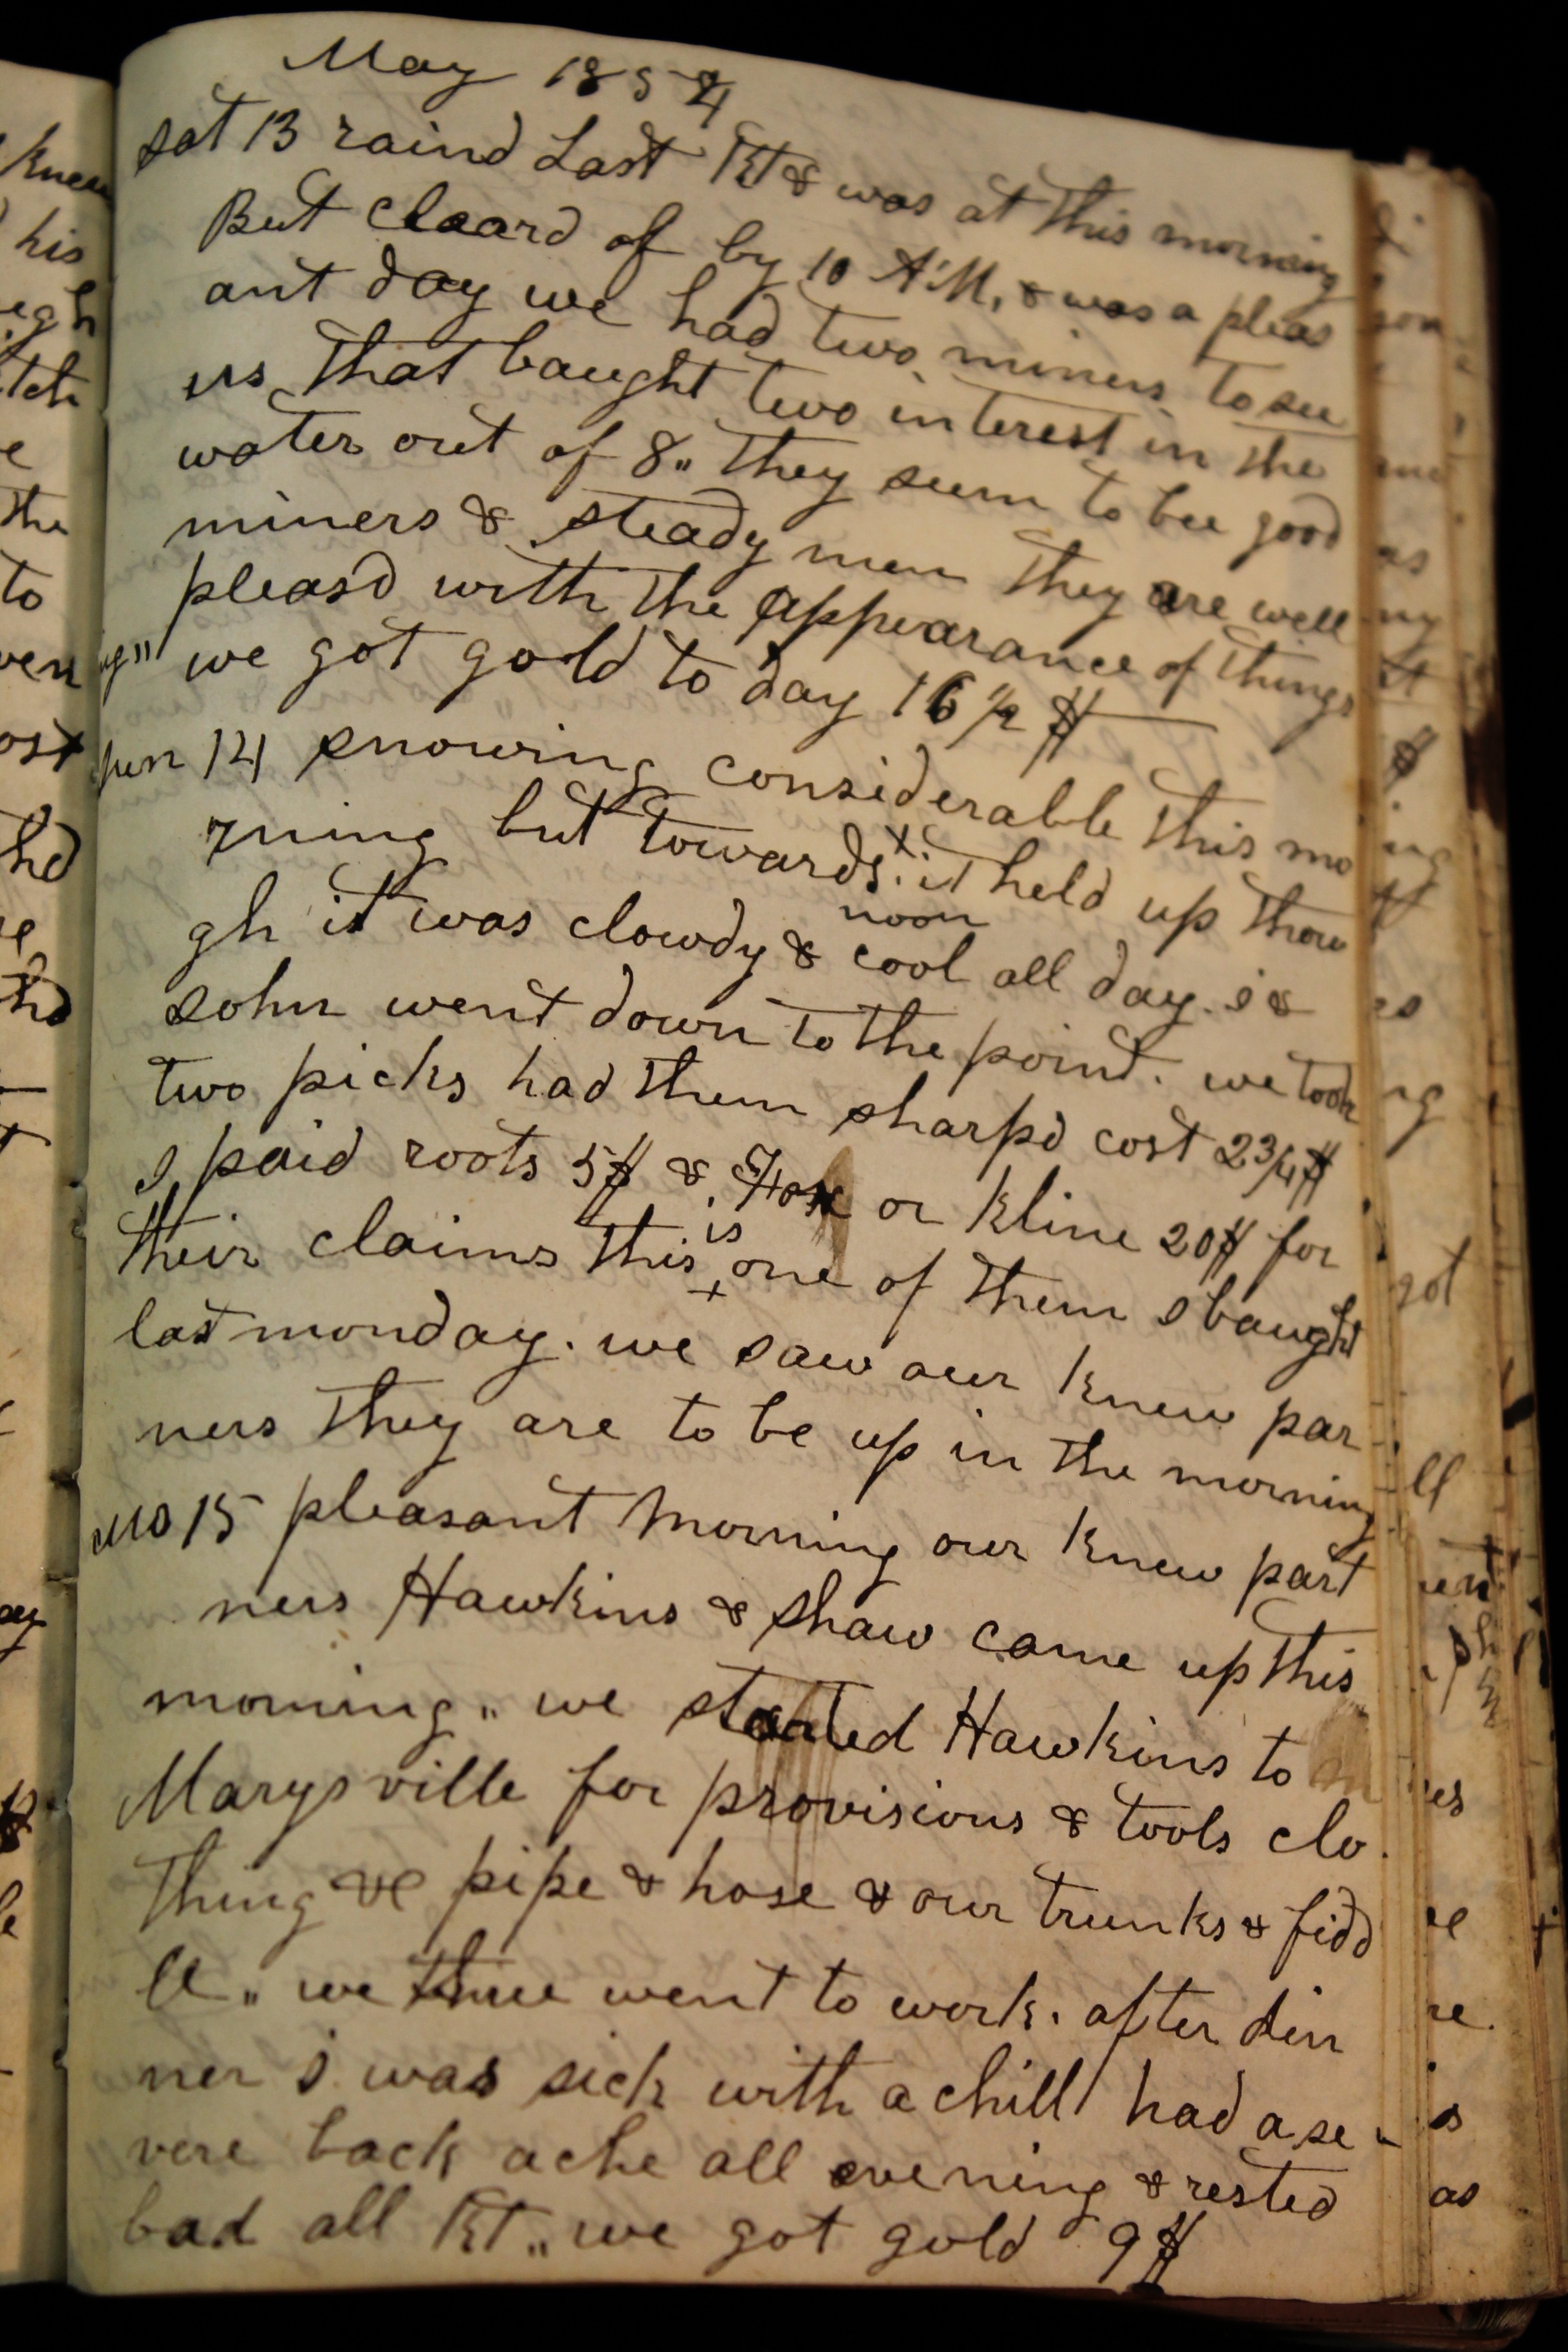 May 1854
sat 13 raind Last Kt & was at this morning
But claard of by 10 A'M, & was a pleas
ant day we had two miners to see
us that baught two interest in the
water out of 8" they seem to bee good
miners & steady men they are well
pleasd with the appearance of things
we got gold to day 16 1/2 $
sun 14 snowing considerable this mo
rning but towards x it held up thow
noon
gh it was clowdy & cool all day. I &
John went down to the point. we took
two picks had them sharpd cost 2 3/4 $
I paid roots 5$ & or Kline 20$ for
is
their claims this + one of them I baught
last monday. we saw our knew par
ners they are to be up in the morning
mo 15 pleasant morning our knew part
ners Hawkins & Shaw came up this
morning " we started Hawkins to
Marysville for provisions & tools clo
thing &c pipe & hose & our trunks & fidd
le " we three went to work. after din
ner I was sick with a chill had a se -
vere back ache all evening & rested
bad all Kt " we got gold 9$